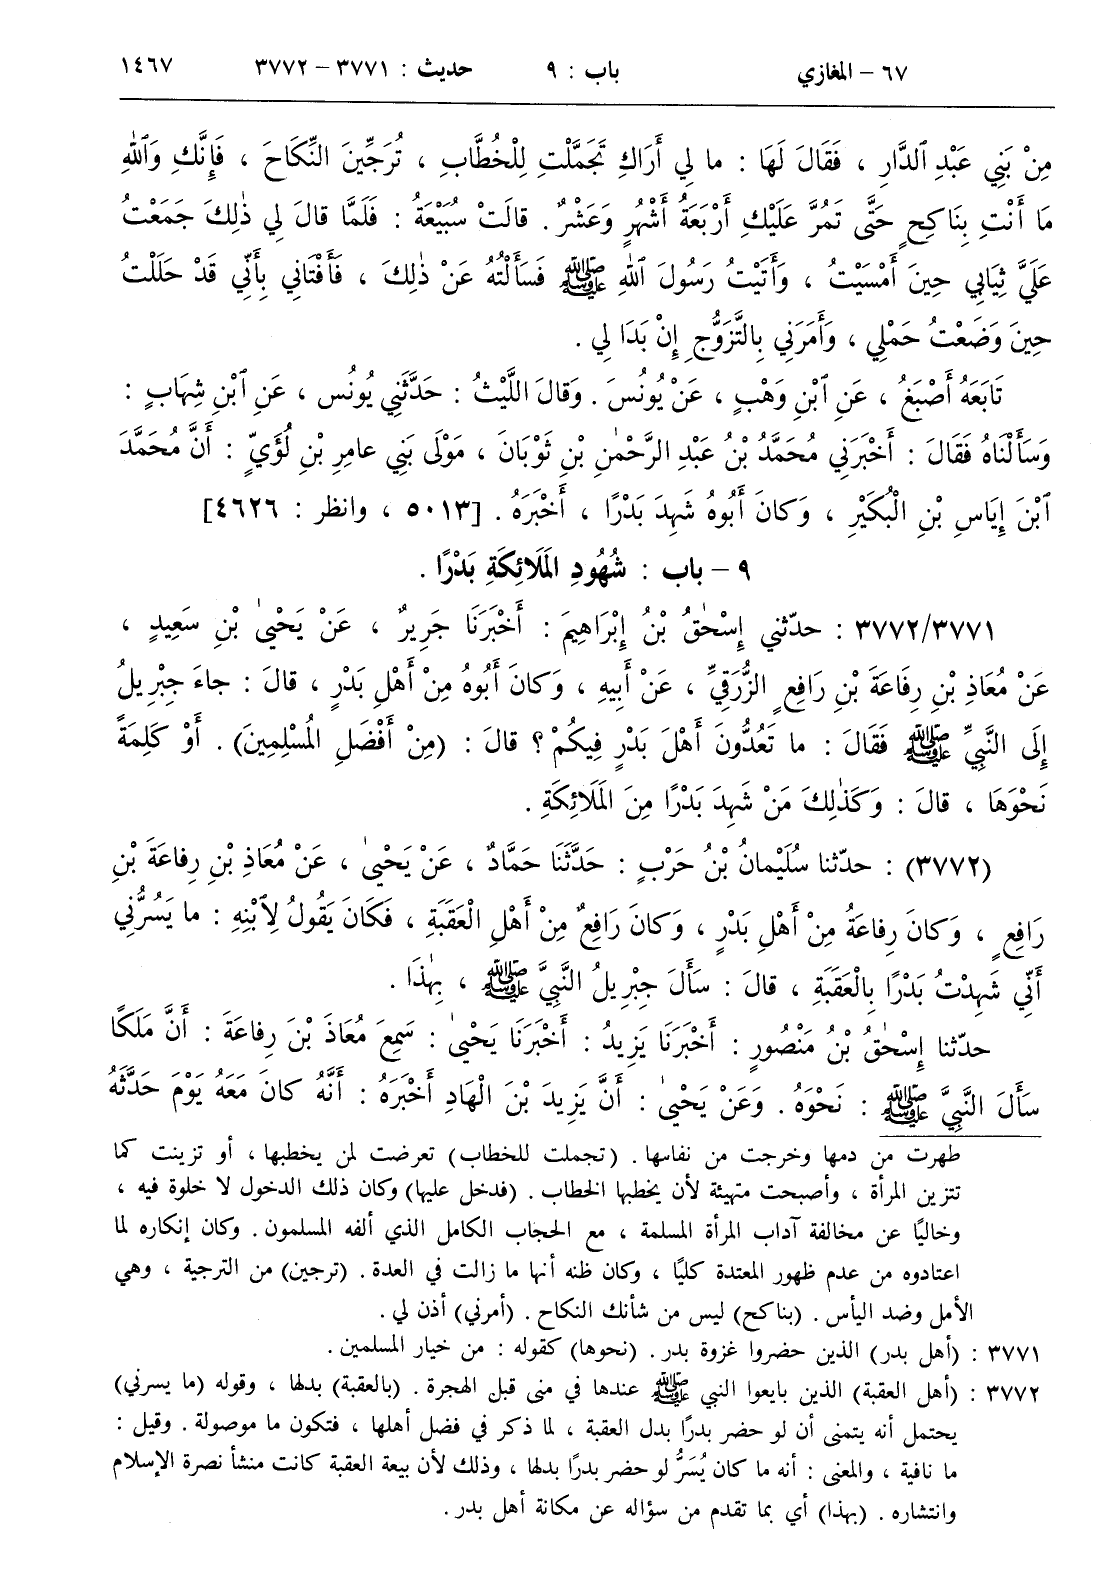 ٦٧ – المغازي باب : ٩ حديث : ٣٧٧١ – ٣٧٧٢ ١٤٦٧
مِنْ بَنِي عَبْدِ ٱلدَّارِ ، فَقَالَ لَهَا : ما لي أَرَاكِ تَجَمَّلْتِ لِلْخُطَّابِ ، تُرَجِّينَ النِّكَاحَ ، فَإِنَّكِ وَٱللهِ
مَا أَنْتِ بِنَاكِحٍ حَتَّى تَمُرَّ عَلَيْكِ أَرْبَعَةُ أَشْهُرٍ وَعَشْرٌ . قالَتْ سُبَيْعَةُ : فَلَمَّا قالَ لِي ذٰلِكَ جَمَعْتُ
عَلَيَّ ثِيَابِي حِينَ أَمْسَيْتُ ، وَأَتَيْتُ رَسُولَ ٱللهِ ﷺ فَسَأَلْتُهُ عَنْ ذٰلِكَ ، فَأَفْتَانِي بِأَنِّي قَدْ حَلَلْتُ
حِينَ وَضَعْتُ حَمْلِي ، وَأَمَرَنِي بِالتَّزَوُّجِ إِنْ بَدَا لِي .
تَابَعَهُ أَصْبَغُ ، عَنِ ٱبْنِ وَهْبٍ ، عَنْ يُونُسَ . وَقالَ اللَّيْثُ : حَدَّثَنِي يُونُس ، عَنِ ٱبْنِ شِهَابٍ :
وَسَأَلْنَاهُ فَقَالَ : أَخْبَرَنِي مُحَمَّدُ بْنُ عَبْدِ الرَّحْمٰنِ بْنِ ثَوْبَانَ ، مَوْلَى بَنِي عامِرِ بْنِ لُؤَيٍّ : أَنَّ مُحَمَّدَ
ٱبْنَ إِيَاسِ بْنِ الْبُكَيْرِ ، وَكانَ أَبُوهُ شَهِدَ بَدْرًا ، أَخْبَرَهُ . [٥٠١٣ ، وانظر : ٤٦٢٦]
٩ – باب : شُهُودِ المَلَائِكَةِ بَدْرًا .
٣٧٧٢/٣٧٧١ : حدّثني إِسْحٰقُ بْنُ إِبْرَاهِيمَ : أَخْبَرَنَا جَرِيرٌ ، عَنْ يَحْيىٰ بْنِ سَعِيدٍ ،
عَنْ مُعَاذِ بْنِ رِفاعَةَ بْنِ رَافِعٍ الزُّرَقِيِّ ، عَنْ أَبِيهِ ، وَكانَ أَبُوهُ مِنْ أَهْلِ بَدْرٍ ، قالَ : جاءَ جِبْرِيلُ
إِلَى النَّبِيِّ ﷺ فَقَالَ : ما تَعُدُّونَ أَهْلَ بَدْرٍ فِيكُمْ ؟ قالَ : (مِنْ أَفْضَلِ المُسْلِمِينَ) . أَوْ كَلِمَةً
نَحْوَهَا ، قالَ : وَكَذٰلِكَ مَنْ شَهِدَ بَدْرًا مِنَ المَلَائِكَةِ .
(٣٧٧٢) : حدّثنا سُلَيْمانُ بْنُ حَرْبٍ : حَدَّثَنَا حَمَّادٌ ، عَنْ يَحْيىٰ ، عَنْ مُعَاذِ بْنِ رِفاعَةَ بْنِ
رَافِعٍ ، وَكانَ رِفاعَةُ مِنْ أَهْلِ بَدْرٍ ، وَكانَ رَافِعٌ مِنْ أَهْلِ الْعَقَبَةِ ، فَكَانَ يَقُولُ لِٱبْنِهِ : ما يَسُرُّنِي
أَنِّي شَهِدْتُ بَدْرًا بِالْعَقَبَةِ ، قالَ : سَأَلَ جِبْرِيلُ النَّبِيَّ ﷺ ، بِهٰذَا .
حدّثنا إِسْحٰقُ بْنُ مَنْصُورٍ : أَخْبَرَنَا يَزِيدُ : أَخْبَرَنَا يَحْيىٰ : سَمِعَ مُعَاذَ بْنَ رِفاعَةَ : أَنَّ مَلَكًا
سَأَلَ النَّبِيَّ ﷺ : نَحْوَهُ . وَعَنْ يَحْيىٰ : أَنَّ يَزِيدَ بْنَ الْهَادِ أَخْبَرَهُ : أَنَّهُ كانَ مَعَهُ يَوْمَ حَدَّثَهُ
طهرت من دمها وخرجت من نفاسها . (تجملت للخطاب) تعرضت لمن يخطبها ، أو تزينت كما
تتزين المرأة ، وأصبحت متهيئة لأن يخطبها الخطاب . (فدخل عليها) وكان ذلك الدخول لا خلوة فيه ،
وخاليًا عن مخالفة آداب المرأة المسلمة ، مع الحجاب الكامل الذي ألفه المسلمون . وكان إنكاره لما
اعتادوه من عدم ظهور المعتدة كليًا ، وكان ظنه أنها ما زالت في العدة . (ترجين) من الترجية ، وهي
الأمل وضد اليأس . (بناكح) ليس من شأنك النكاح . (أمرني) أذن لي .
٣٧٧١ : (أهل بدر) الذين حضروا غزوة بدر . (نحوها) كقوله : من خيار المسلمين .
٣٧٧٢ : (أهل العقبة) الذين بايعوا النبي ﷺ عندها في منى قبل الهجرة . (بالعقبة) بدلها ، وقوله (ما يسرني)
يحتمل أنه يتمنى أن لو حضر بدرًا بدل العقبة ، لما ذكر في فضل أهلها ، فتكون ما موصولة . وقيل :
ما نافية ، والمعنى : أنه ما كان يُسَرُّ لو حضر بدرًا بدلها ، وذلك لأن بيعة العقبة كانت منشأ نصرة الإسلام
وانتشاره . (بهذا) أي بما تقدم من سؤاله عن مكانة أهل بدر .